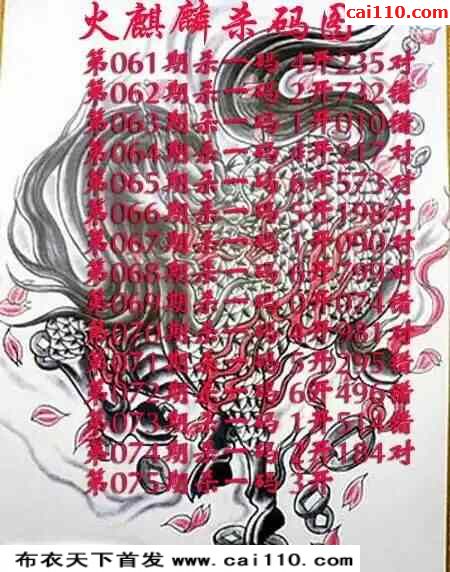 cai110.com
火麒麟杀码图
第061期杀一码 4开235对
第062期杀一码 2开732错
第063期杀一码 1开010错
第064期杀一码 4开217对
第065期杀一码 6开573对
第066期杀一码 5开198对
第067期杀一码 1开090对
第068期杀一码 开799对
第069期杀一码 开074错
第070期杀一码 开981对
第071期杀一码 5开295错
第072期杀一码 6开496错
第073期杀一码 1开错
第074期杀一码 2开184对
第075期杀一码 3开
布衣天下首发 www.cai110.com